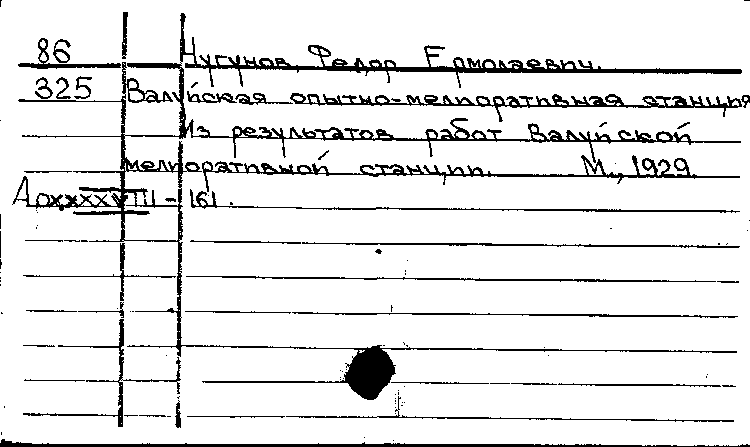 86 Чугунов, Федор Ермолаевич.
325 Валуйская опытно-мелиоративная станция
Из результатов работ Валуйской
мелиоративной станции. М., 1929.
Арх XXXVIII - 161.